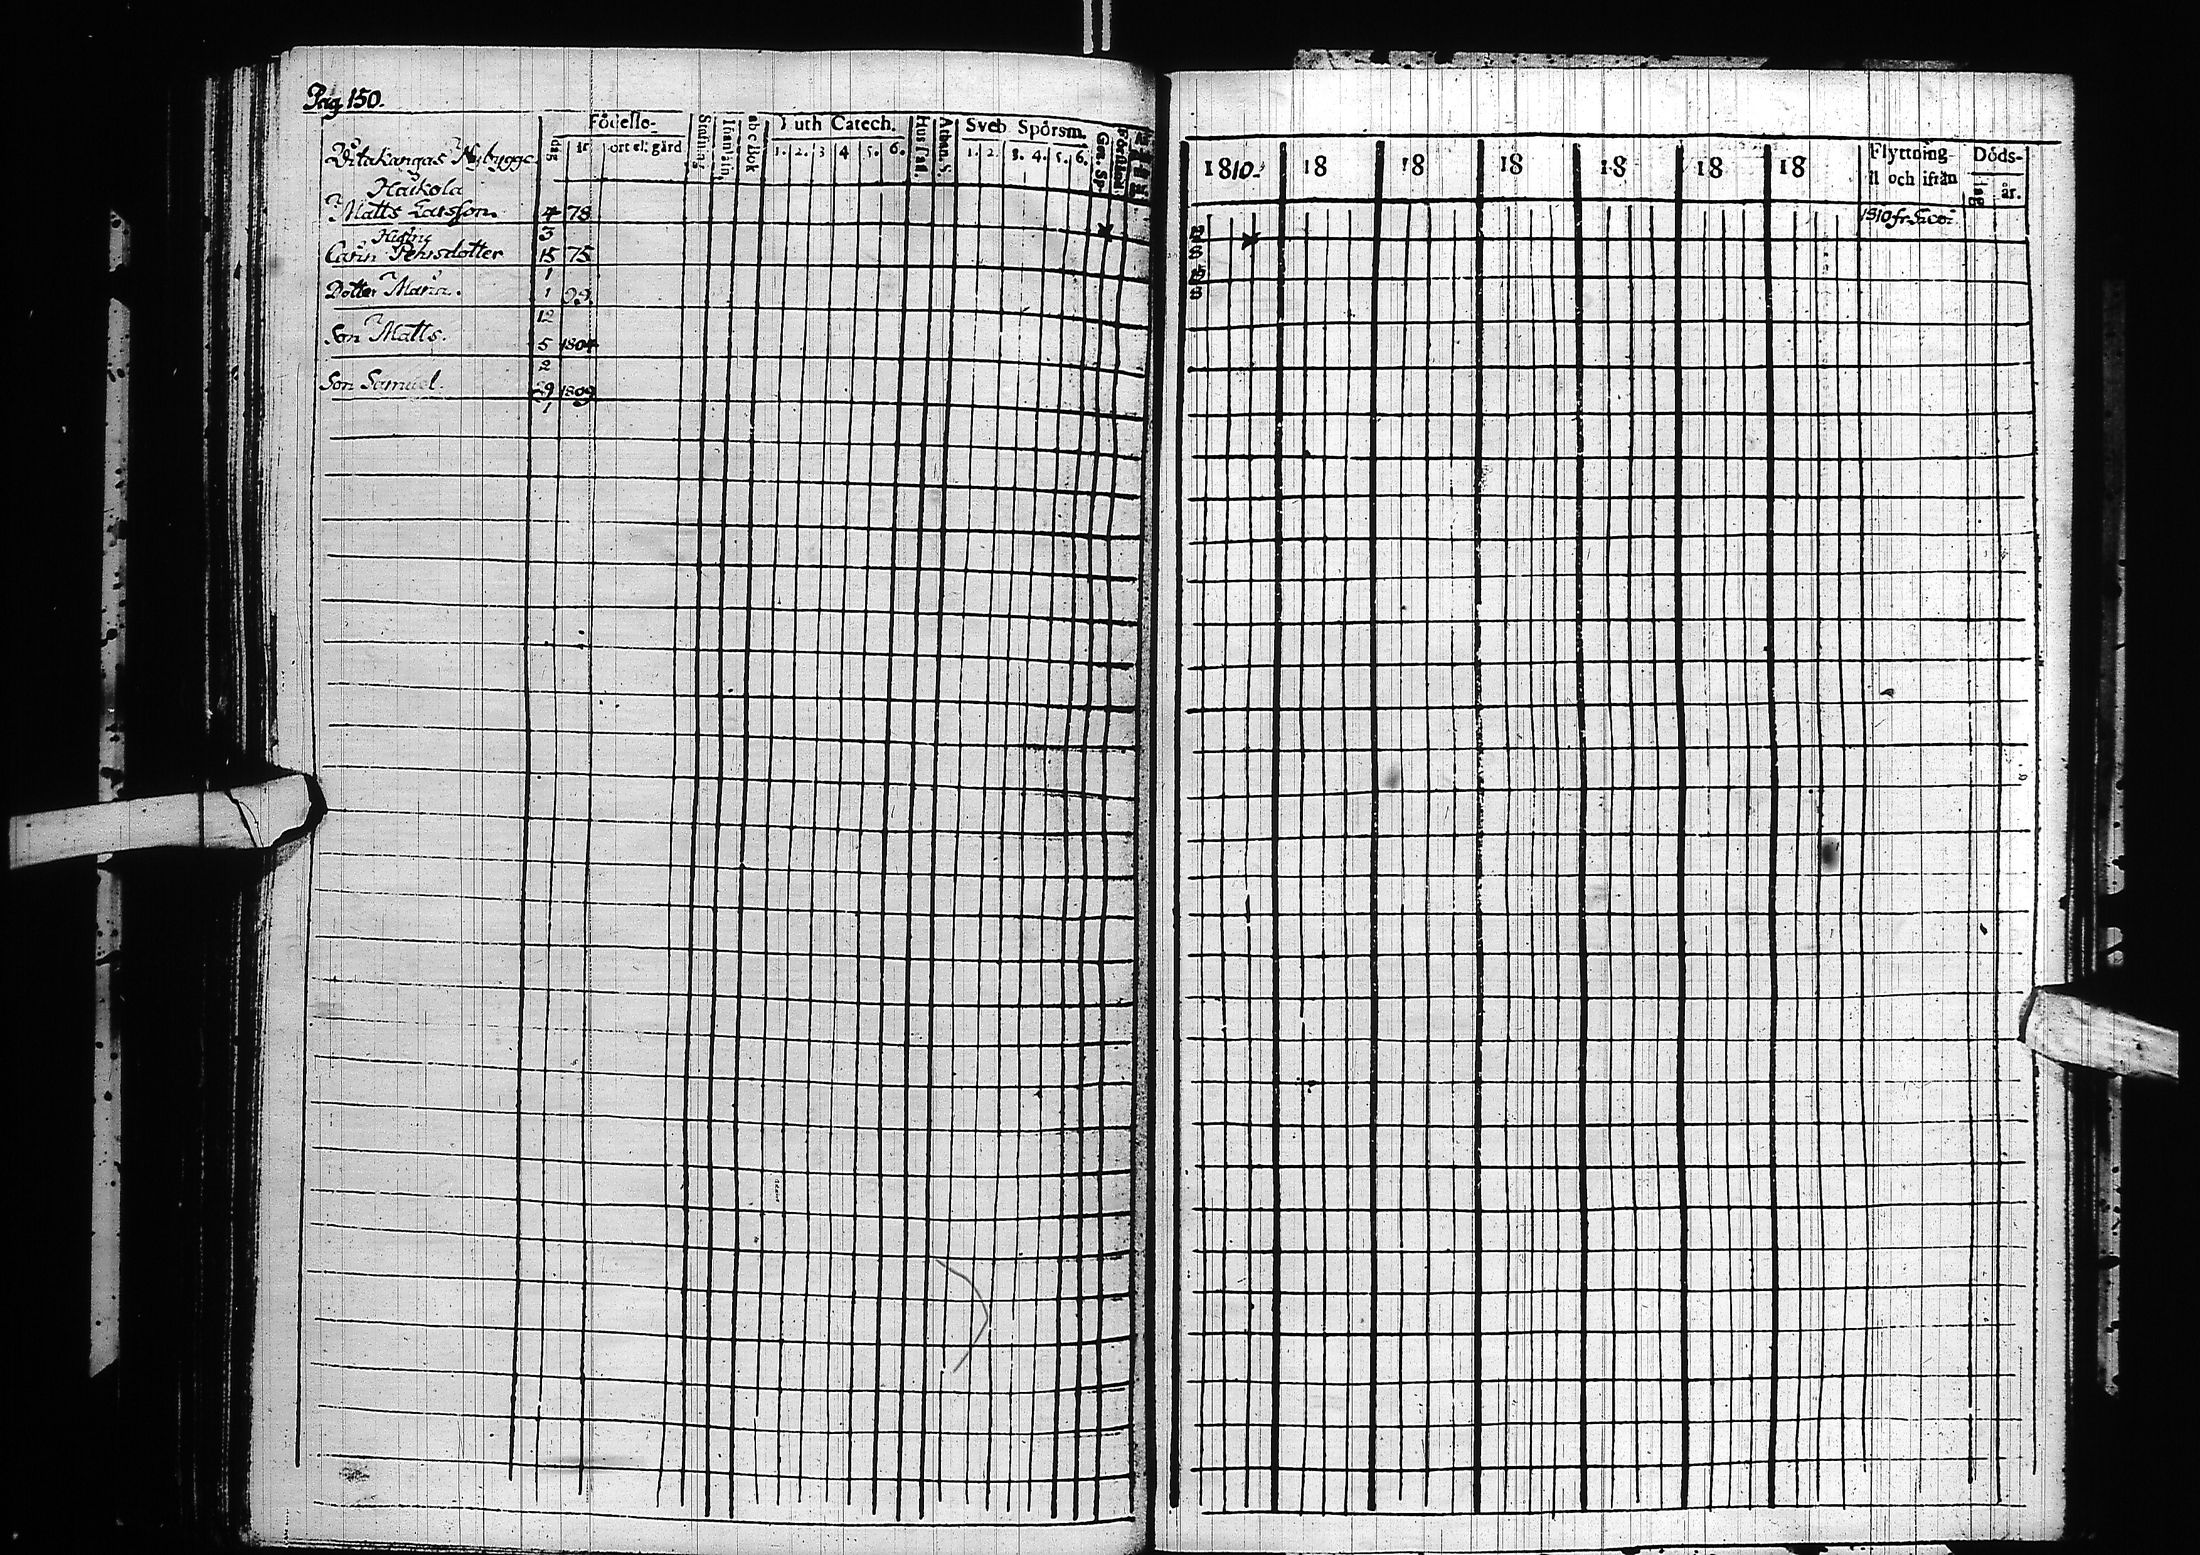 Pag 150.
Födelse-
dag år ort el. gård
Stafning
Innanläsn.
abc Bok
Luth Catech.
1. 2. 3 4 5. 6.
Hustafl.
Athan. S.
Sveb. Spörsm.
1. 2. 3. 4. 5. 6.
Förstånd
Nybygge
Matts Larsson 4 78
3
Carin Pehrsdotter 15 75
1
Dotter Maria. 1
12
Son Matts. 5 1804
2
Son Samuel. 29 1809
1
1810. 18 18 18 18 18 18
Flyttning
ll och ifrån
Döds-
dag år.
1810 fr.